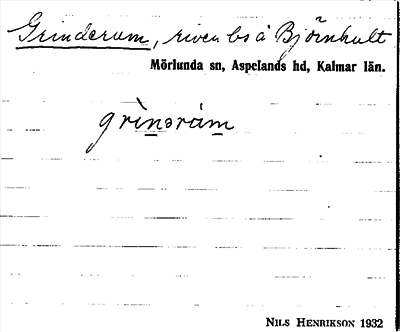 Grinderum, riven bs å Björnhult
Mörlunda sn, Aspelands hd, Kalmar län.
grìnəràm
NILS HENRIKSON 1932